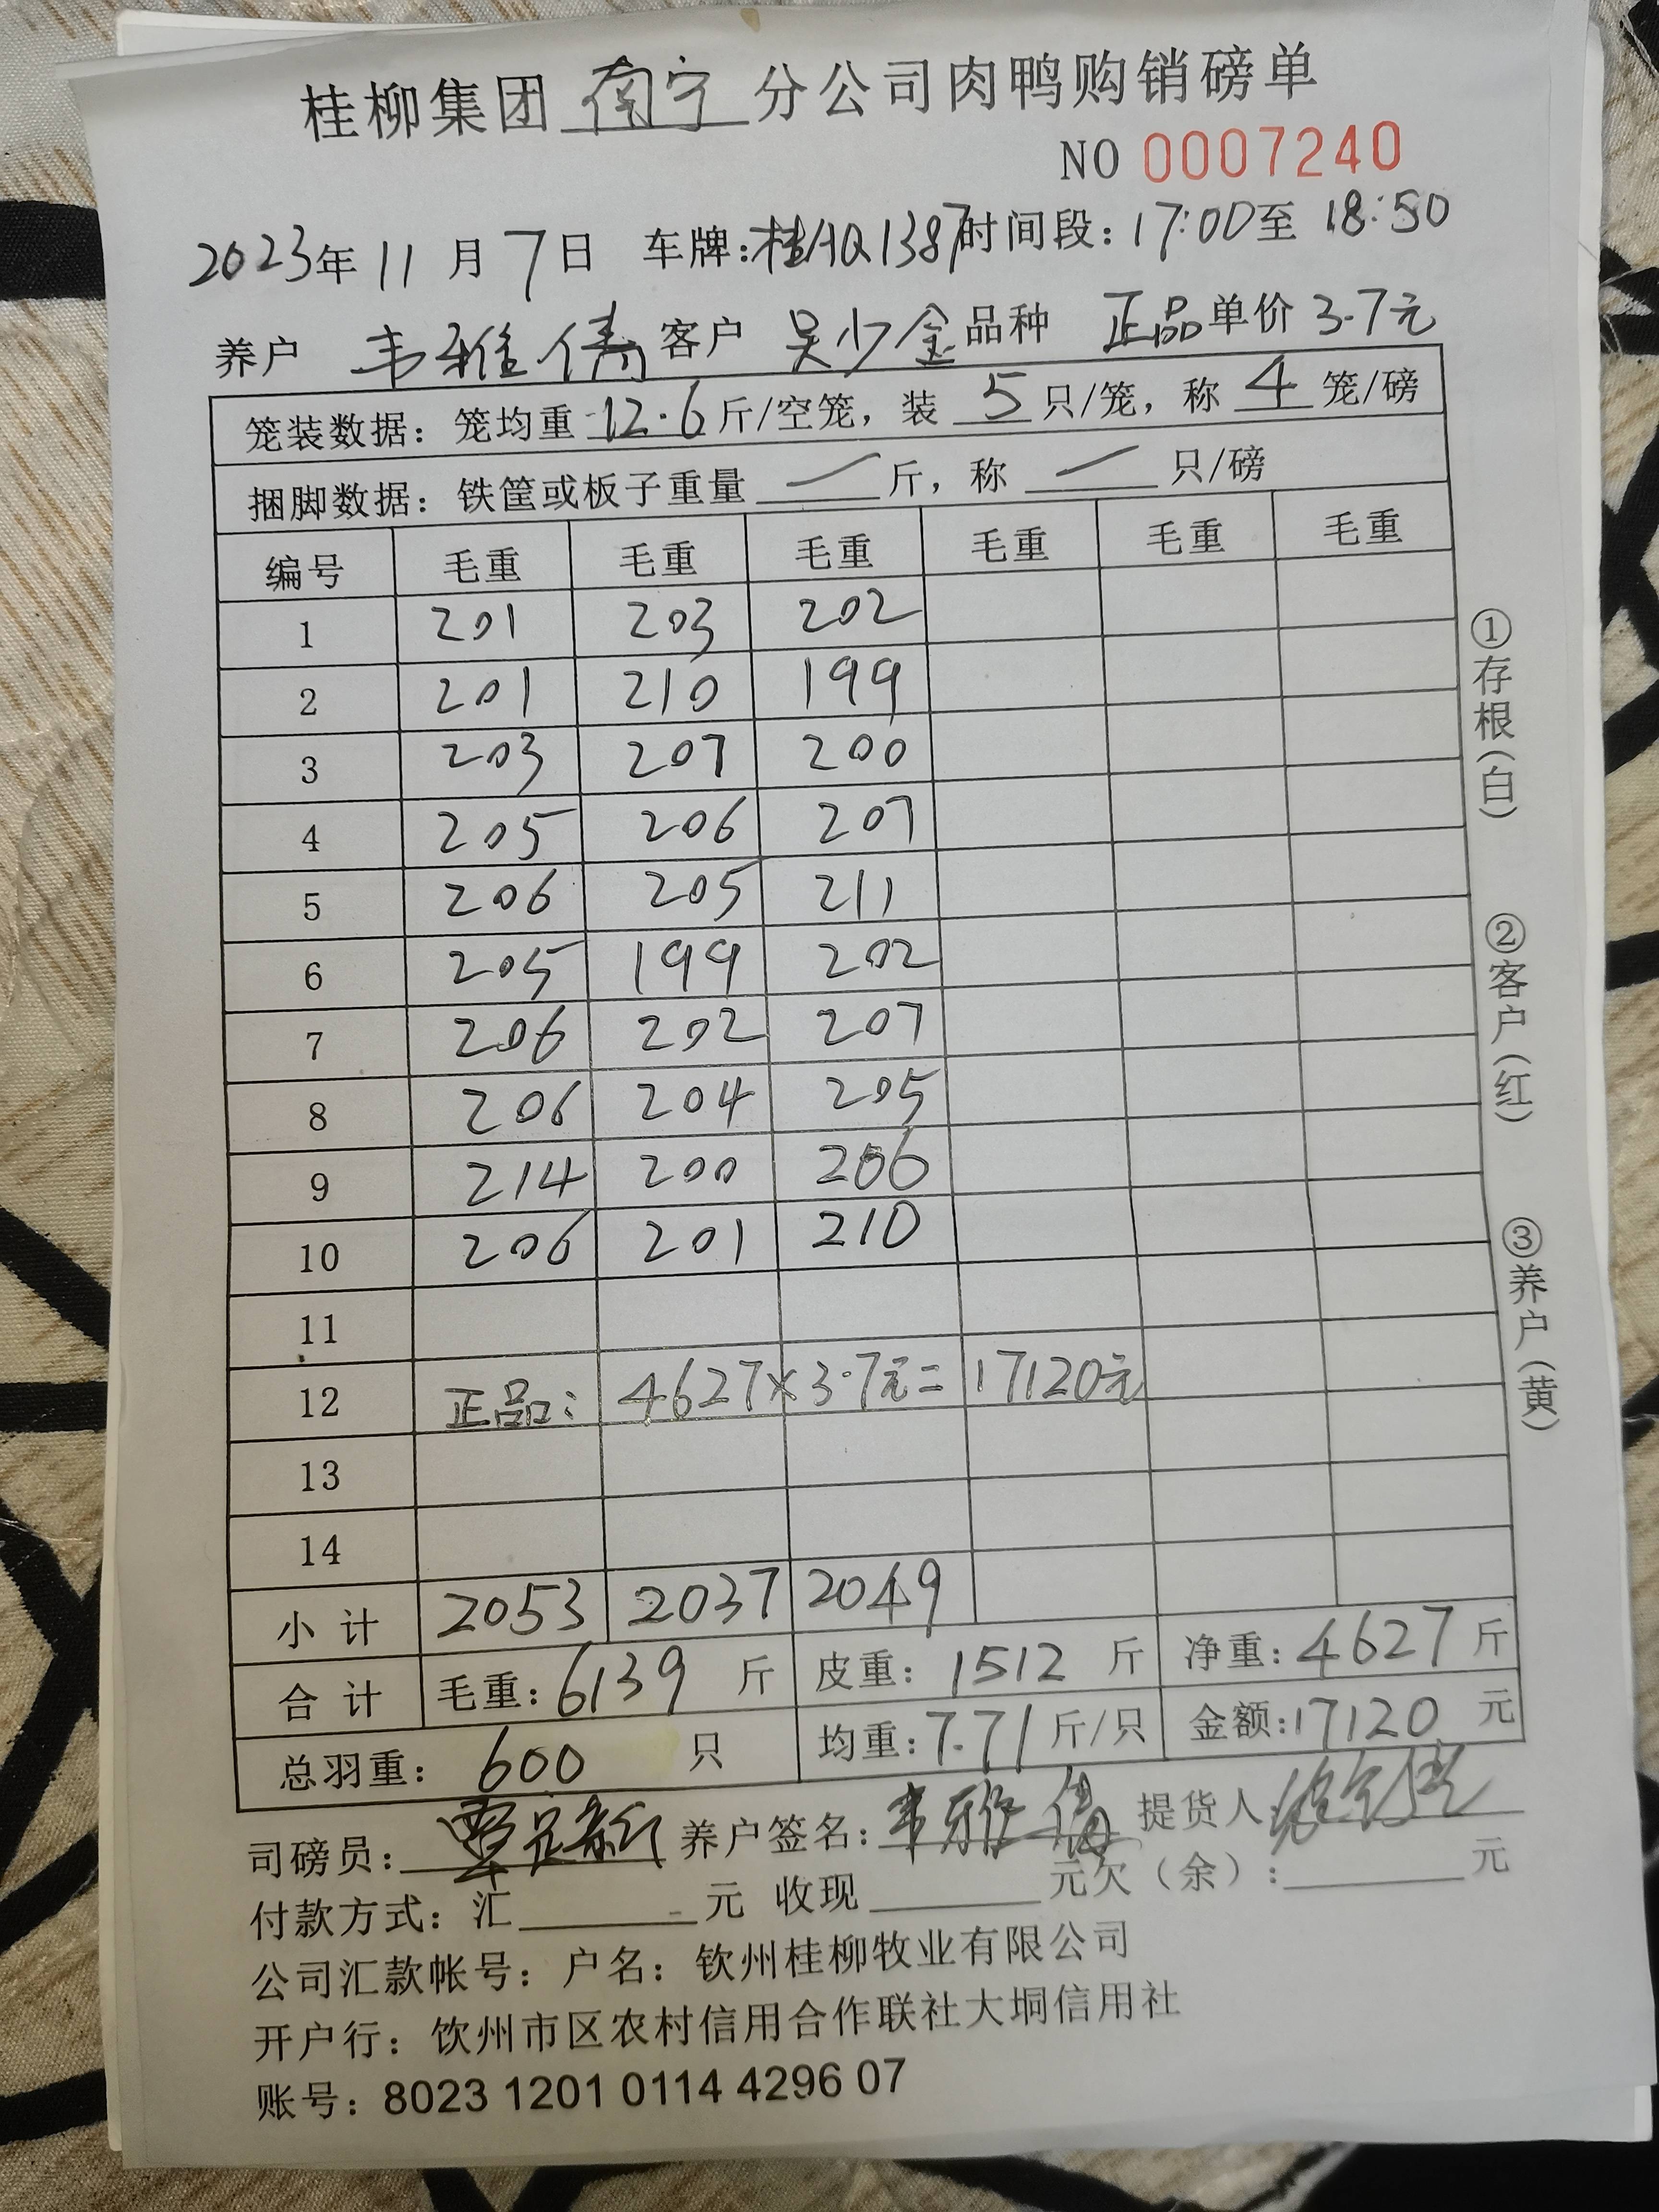 桂柳集团 南宁 分公司肉鸭购销磅单
NO 0007240
2023年 11 月 7 日 车牌:桂AQ1387 时间段: 17:00至 18:50
养户 韦雅倩 客户 吴少金 品种 正品 单价 3.7元
笼装数据: 笼均重 12.6 斤/空笼, 装 5 只/笼, 称 4 笼/磅
捆脚数据: 铁筐或板子重量 — 斤, 称 — 只/磅
编号 毛重 毛重 毛重 毛重 毛重 毛重
1 201 203 202
2 201 210 199
3 203 207 200
4 205 206 207
5 206 205 211
6 205 199 202
7 206 202 207
8 206 204 205
9 214 200 206
10 206 201 210
11
12 正品: 4627×3.7元= 17120元
13
14
小 计 2053 2037 2049
合 计 毛重: 6139 斤 皮重: 1512 斤 净重: 4627 斤
总羽重: 600 只 均重: 7.71 斤/只 金额: 17120 元
司磅员: 养户签名: 韦雅倩 提货人:
付款方式: 汇 元 收现 元欠(余): 元
公司汇款帐号: 户名: 钦州桂柳牧业有限公司
开户行: 钦州市区农村信用合作联社大垌信用社
账号: 8023 1201 0114 4296 07
①存根(白)
②客户(红)
③养户(黄)